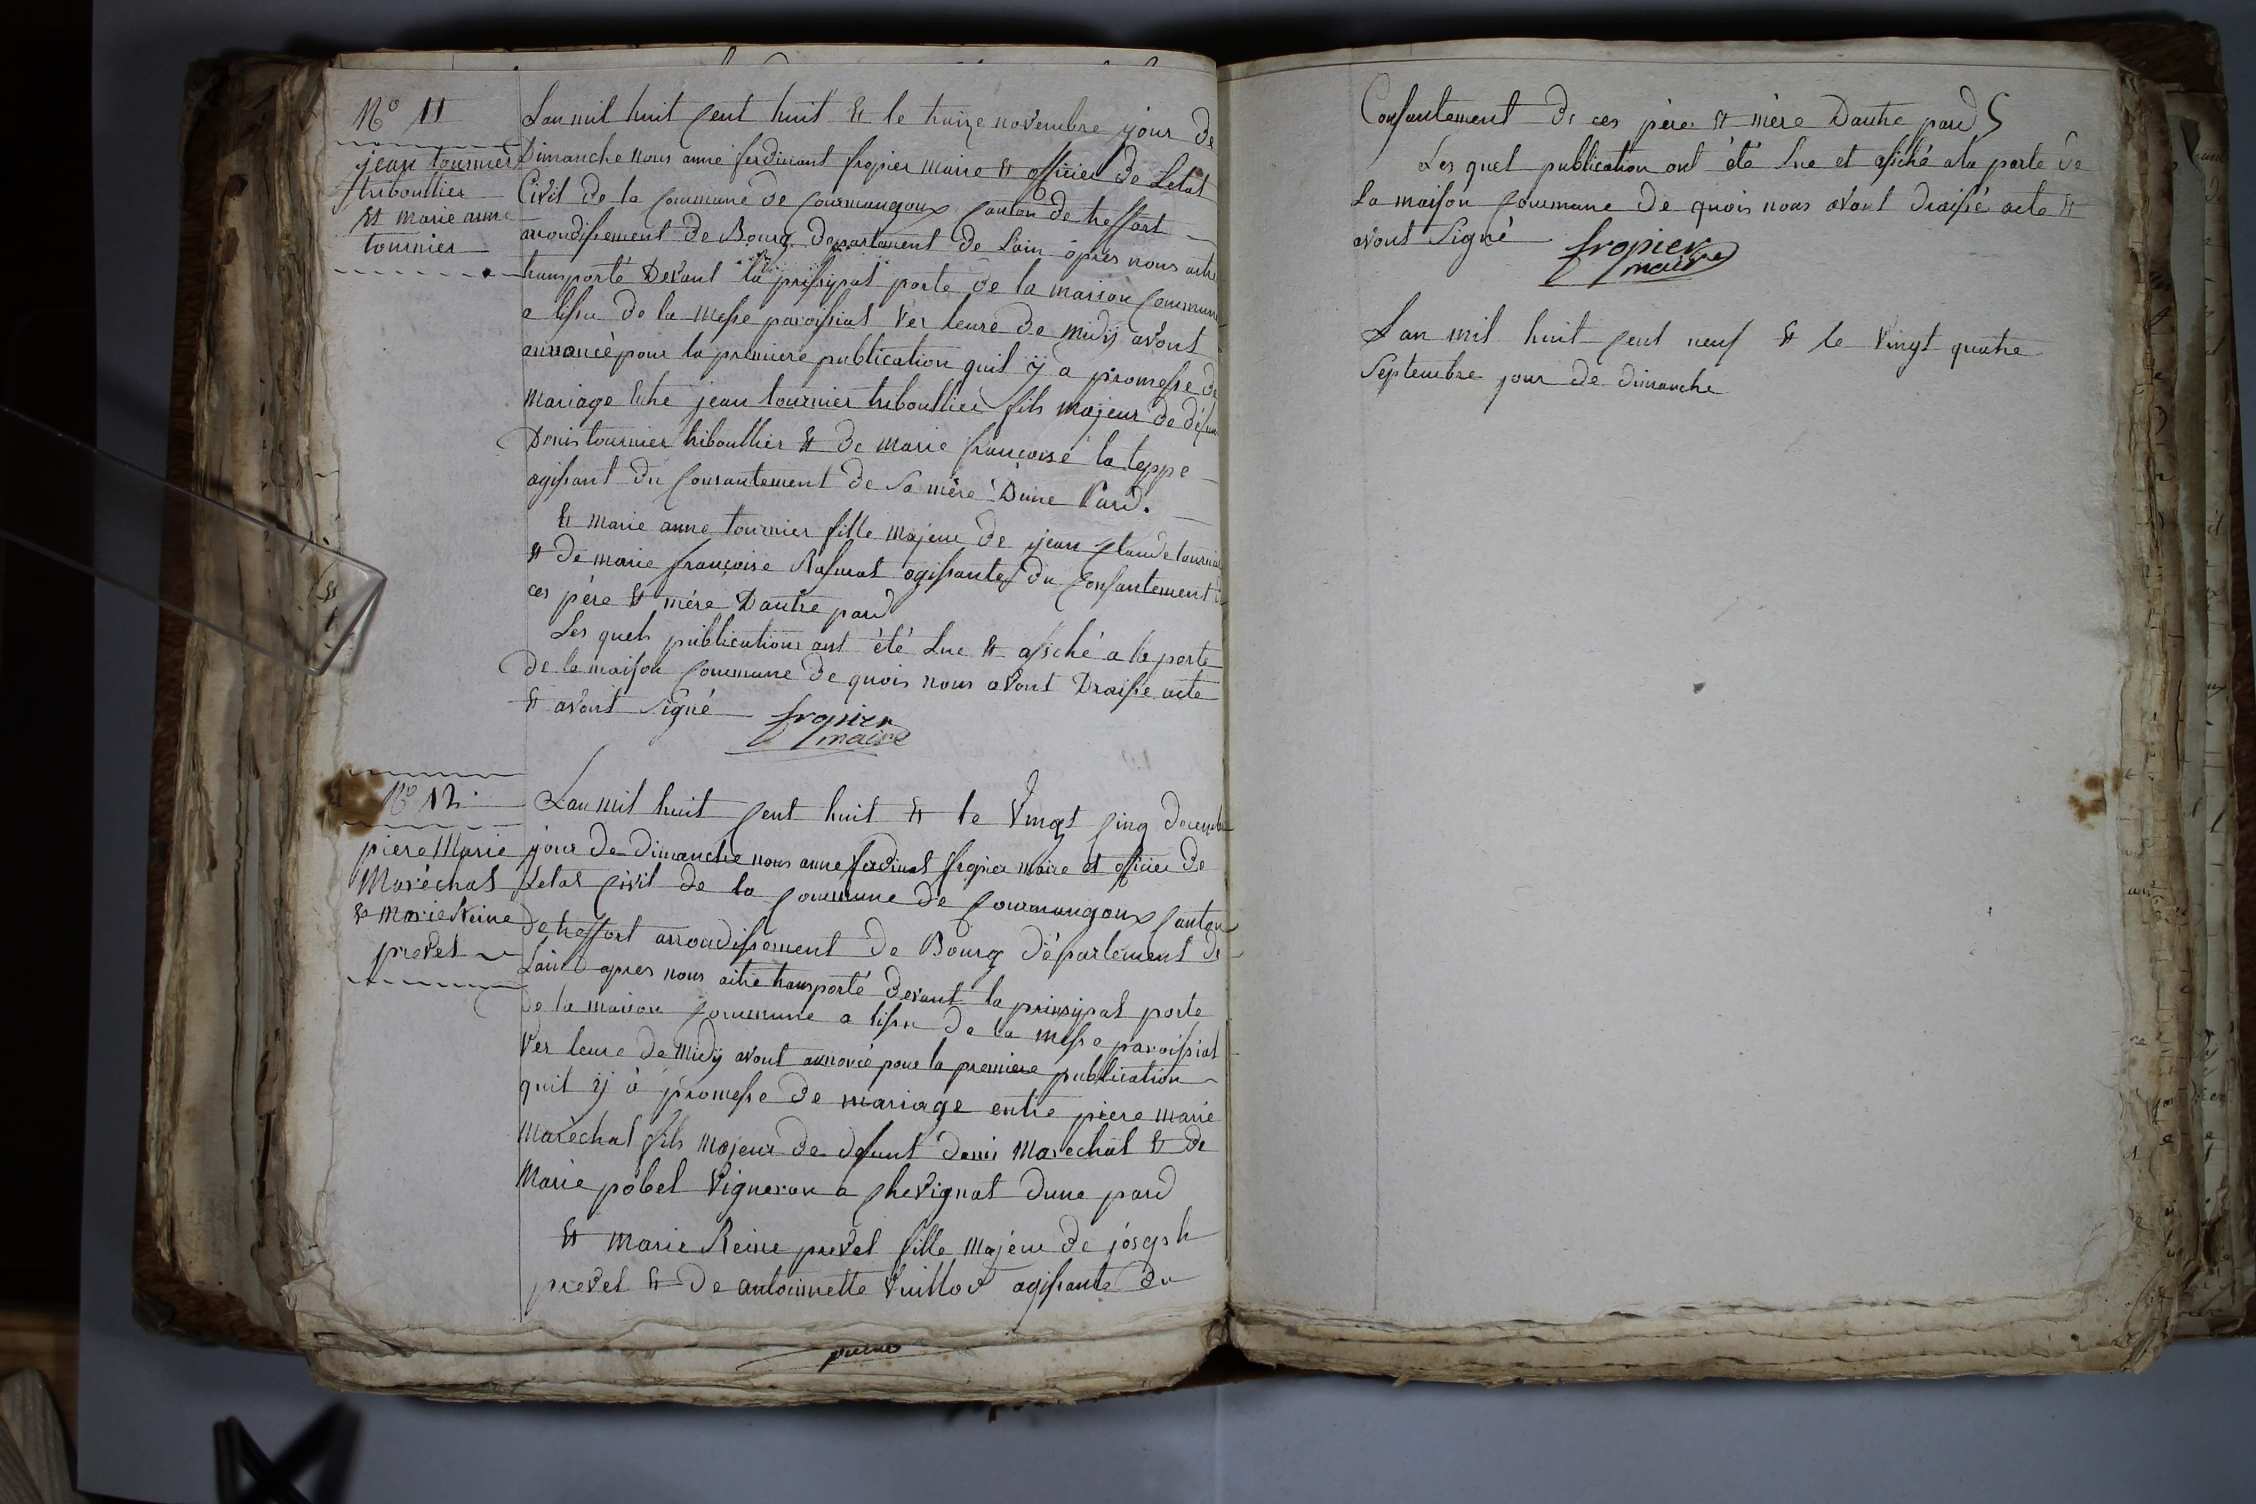 No 11
jean tournier
triboullier
et marie anne
tournier
Lan mil huit cent huit et le treize novembre jour de
Dimanche nous anne ferdinant fropier maire et officier de Letat
Civil de la Commune de Courmangoux Canton de treffort
arondissement de Bourg departement de Lain òpres nous aitre
transporté Devant la prinsypal porte de la maison Commune
a lissu de la messe paroissial ver leure de midÿ avont
annoncé pour la premiere publication quil ÿ a promesse de
mariage Entre jean tournier triboullier fils majeur de défun
Denis tournier triboullier et de marie françoise la teppe
agissant du Consantement de Sa mère Dune Pard.
et marie anne tournier fille majeur de jean Claude tournier
et de marie françoise agissantes du Consantement de
ces père et mère Dautre pard
Les quels publications ont été Lue et afiché a la porte
de la maison Commune de quois nous avont Draissé acte
et avont Signé fropier
maire
No 12
piere Marie
Maréchal
et marie Reine
prevel
Lan mil huit Cent huit et le Vingt Cinq decembre
jour de dimanche nous anne ferdinat fropier maire et officier de
Letat Civil de la Commune de Courmangoux Canton
de treffort arrondissement de Bourg département de
Lain apres nous aitre transporté devant la prinsypal porte
de la maison Commune a lissu de la messe paroissial
Ver leure de Midÿ avont annoncé pour la premiere publication
quil ÿ à promesse de mariage entre piere marie
maréchal fils majeur de defunt denis Marechal et de
Marie pobel Vigneron a Chevignat dune pard
et marie Reine prevel fille majeur de joseph
prevel et de antoinnette Vuillod agissante du
Consantement de ces père et mère Dautre pard
Les quel publication ont été lue et afiché a la porte de
la maison Commune de quois nous avont draissé acte et
avont Signé fropier
maire
Lan mil huit Cent neuf et le Vingt quatre
Septembre jour de dimanche